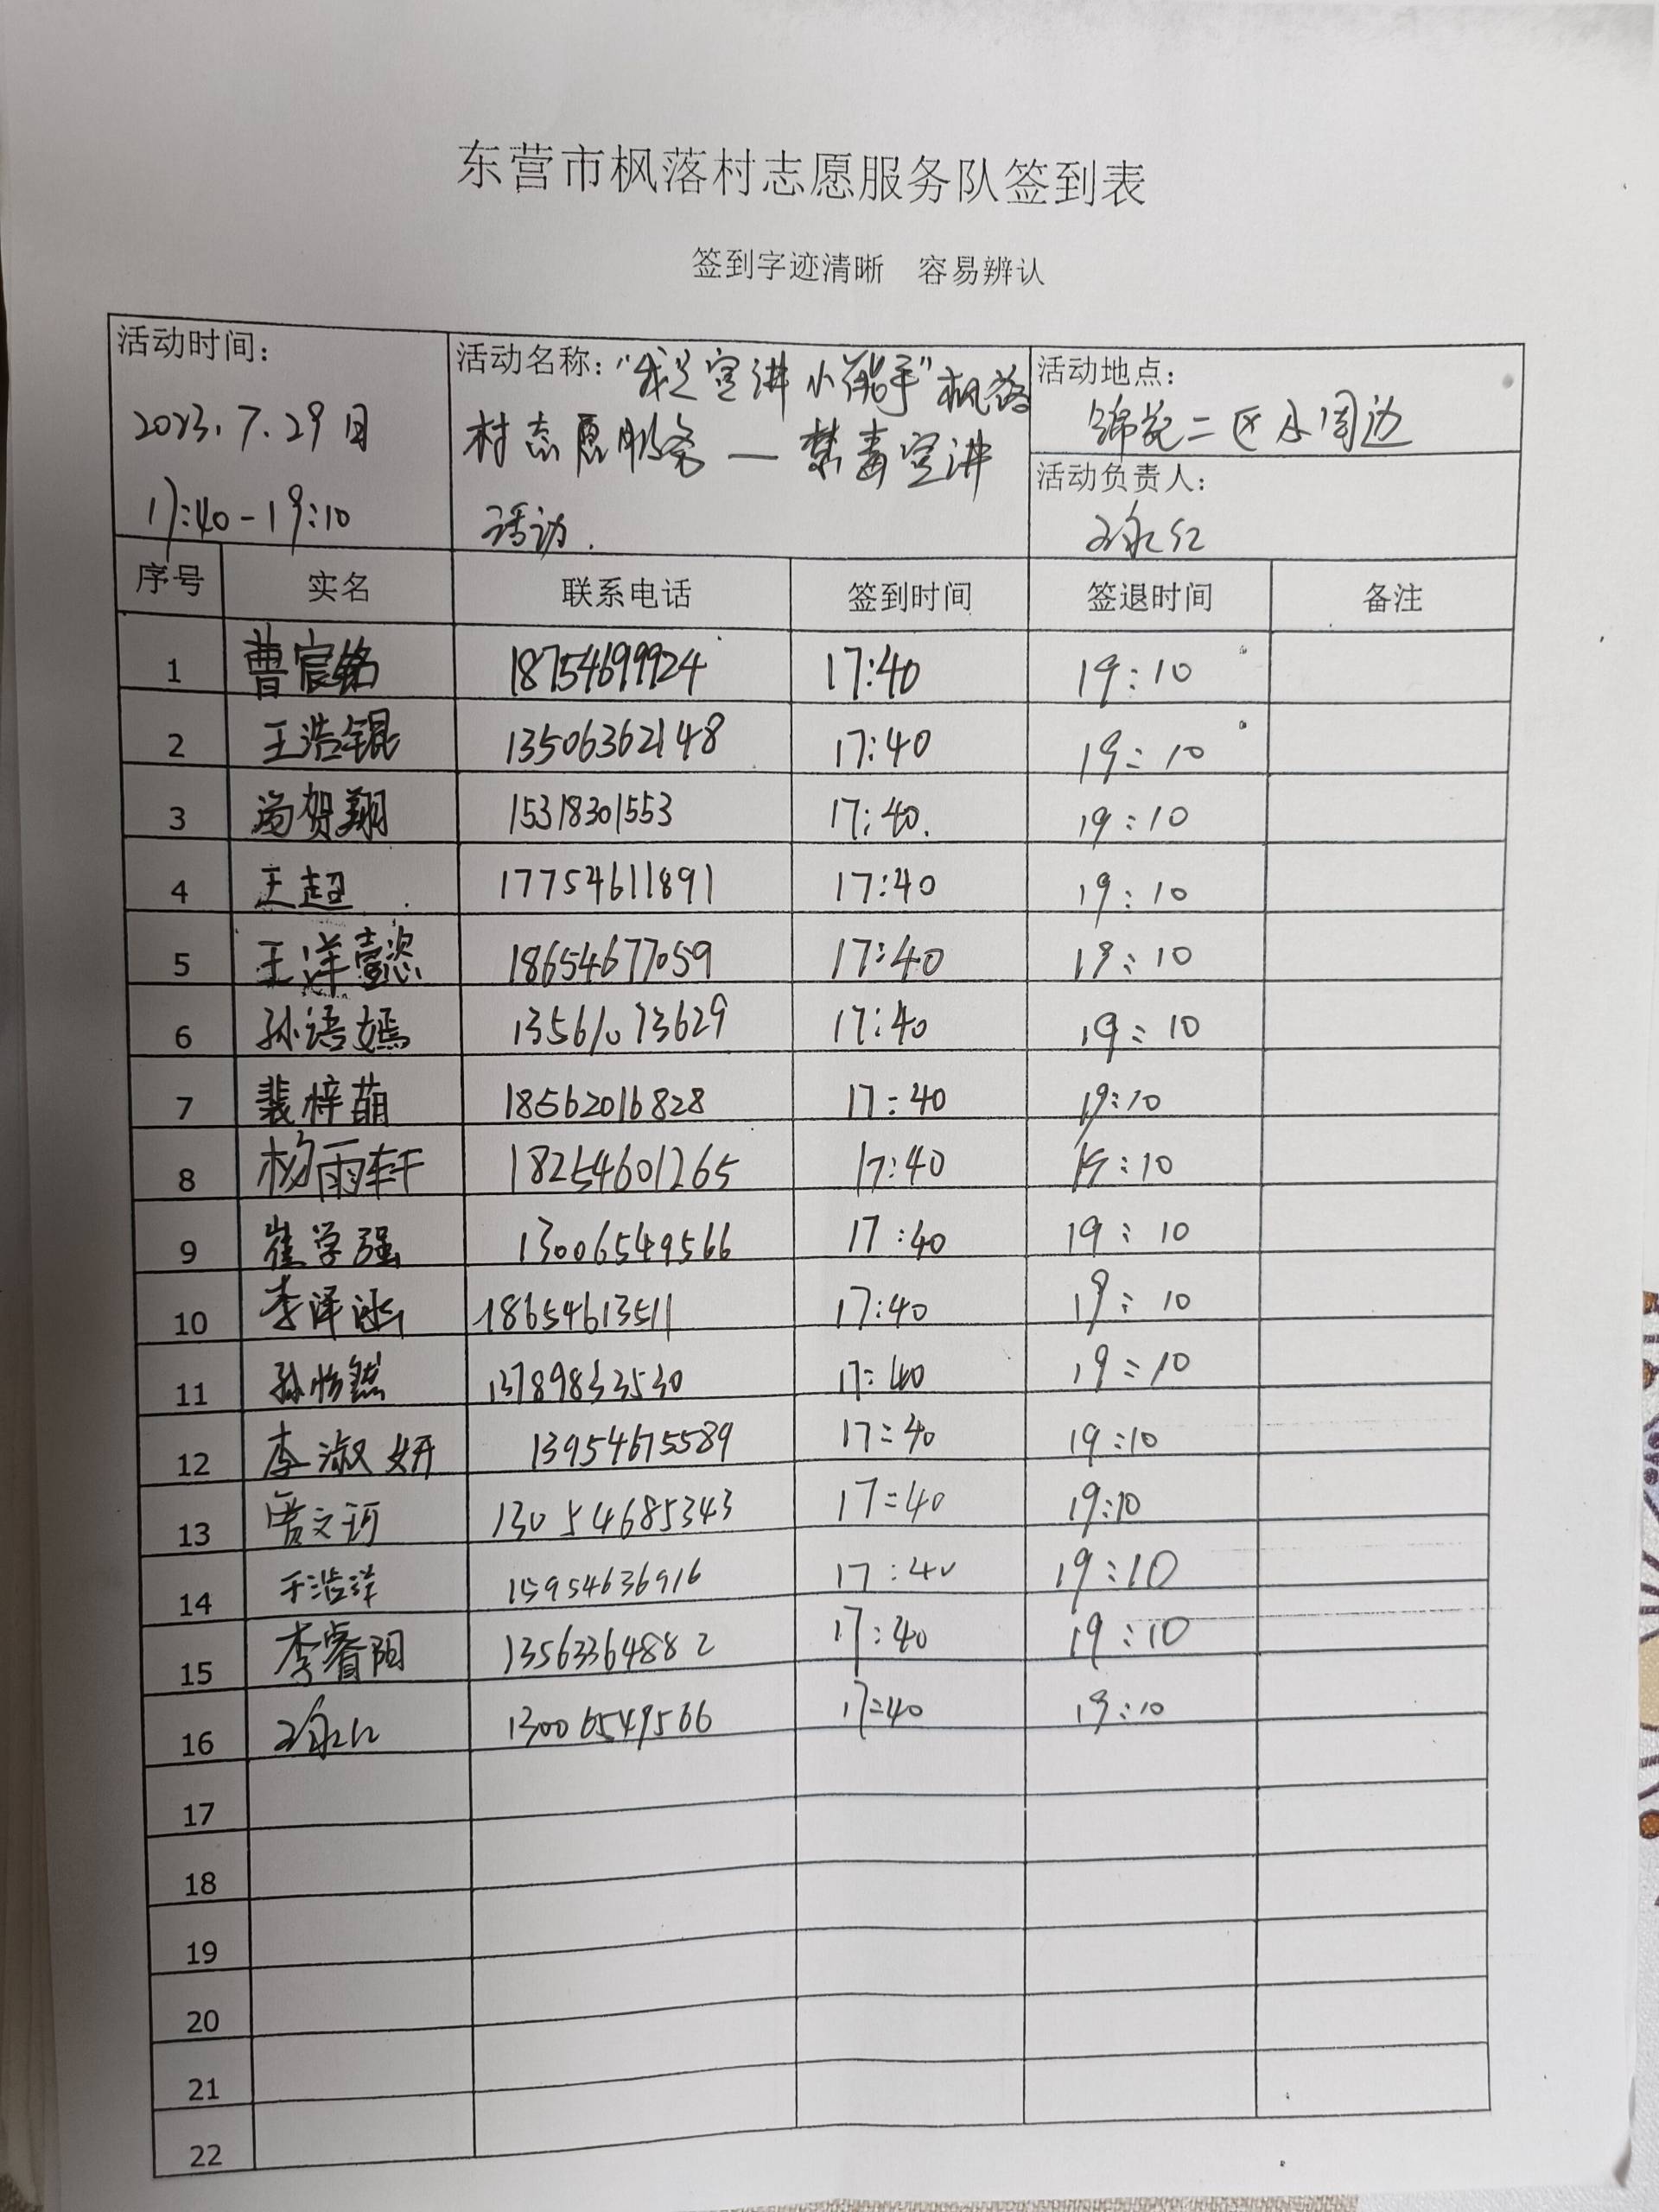 东营市枫落村志愿服务队签到表
签到字迹清晰 容易辨认
活动时间:
2023.7.29日
17:40-19:10
活动名称:"我是宣讲小能手"枫落
村志愿服务—禁毒宣讲
活动.
活动地点:
锦苑二区及周边
活动负责人:
序号 实名 联系电话 签到时间 签退时间 备注
1 曹宸铭 18754699924 17:40 19:10
2 王浩锟 13506362148 17:40 19:10
3 贺翔 15318301553 17:40. 19:10
4 王超 17754611891 17:40 19:10
5 王洋壹恣 18654677059 17:40 19:10
6 孙语嫣 13561073629 17:40 19:10
7 裴梓萌 18562016828 17:40 19:10
8 杨雨轩 18254601265 17:40 19:10
9 崔学强 13006549566 17:40 19:10
10 李泽 18654613511 17:40 19:10
11 孙怡然 13789833530 17:40 19:10
12 李淑妍 13954675589 17:40 19:10
13 文诃 13054685343 17:40 19:10
14 于浩洋 15954636916 17:40 19:10
15 李睿阳 13563364882 17:40 19:10
16 13006549566 17:40 19:10
17
18
19
20
21
22